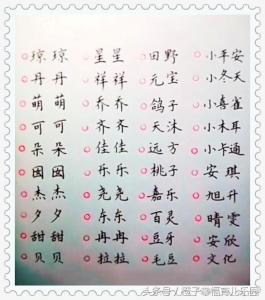 琼琼 星星 田野 小平安
丹丹 祥祥 元宝 小冬天
萌萌 乔乔 鸽子 小喜雀
可可 齐齐 天沐 小木耳
朵朵 佳佳 远方 小卡通
囡囡 乐乐 桃子 安琪
杰杰 尧尧 嘉乐 旭升
夕夕 东东 百灵 晴雯
甜甜 冉冉 豆芽 安欣
贝贝 拉拉 毛豆 文化